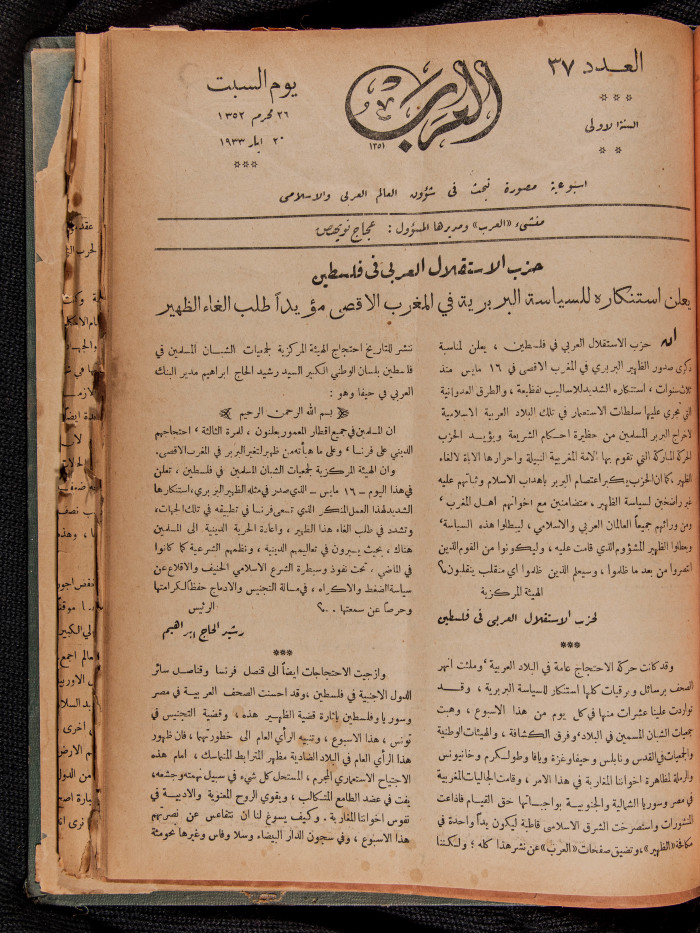 العدد ٣٧
السنة الاولى
العرب
١٣٥١
يوم السبت
٢٦ محرم ١٣٥٢
٢٠ ايار ١٩٣٣
اسبوعية مصورة تبحث في شؤون العالم العربي والاسلامي
منشىء «العرب» ومديرها المسؤول : عجاج نويهض
حزب الاستقلال العربي في فلسطين
يعلن استنكاره للسياسة البربرية في المغرب الاقصى مؤيداً طلب الغاء الظهير
ان حزب الاستقلال العربي في فلسطين ، يعلن لمناسبة
ذكرى صدور الظهير البربري في المغرب الاقصى في ١٦ مايس منذ
ثلاث سنوات ، استنكاره الشديد للاساليب الفظيعة ، والطرق العدوانية
التي تجري عليها سلطات الاستعمار في تلك البلاد العربية الاسلامية
لاخراج البربر المسلمين من حظيرة احكام الشريعة ويؤيد الحزب
الحركة المباركة التي تقوم بها الامة المغربية النبيلة واحرارها الاباة لالغاء
الظهير ، كما ان الحزب يكبر اعتصام البربر باهداب الاسلام وثباتهم عليه
غير راضخين لسياسة الظهير ، متضامنين مع اخوانهم اهل المغرب ،
ومن ورائهم جميعاً العالمان العربي والاسلامي ، ليبطلوا هذه السياسة ،
ويبطلوا الظهير المشؤوم الذي قامت عليه ، وليكونوا من القوم الذين
انتصروا من بعد ما ظلموا ، وسيعلم الذين ظلموا اي منقلب ينقلبون ؟
الهيئة المركزية
لحزب الاستقلال العربي في فلسطين
وقد كانت حركة الاحتجاج عامة في البلاد العربية ، وملئت انهر
الصحف برسائل وبرقيات كلها استنكار للسياسة البربرية ، وقد
تواردت علينا عشرات منها في كل يوم من هذا الاسبوع ، وهبت
جمعيات الشبان المسلمين في البلاد ، وفرق الكشافة ، والهيئات الوطنية
والجمعيات في القدس ونابلس وحيفا وغزة ويافا وطولكرم وخانيونس
والرملة لمظاهرة اخواننا المغاربة في هذا الامر ، وقامت الجاليات المغربية
في مصر وسوريا الشمالية والجنوبية بواجباتها حق القيام فاذاعت
المنشورات واستصرخت الشرق الاسلامي قاطبة ليكون يداً واحدة في
مكافحة «الظهير» ، وتضيق صفحات «العرب» عن نشر هذا كله ؛ ولكننا
ننشر للتاريخ احتجاج الهيئة المركزية لجمعيات الشبان المسلمين في
فلسطين بلسان الوطني الكبير السيد رشيد الحاج ابراهيم مدير البنك
العربي في حيفا وهو :
بسم الله الرحمن الرحيم
ان المسلمين في جميع اقطار المعمور يعلنون ، للمرة الثالثة ، احتجاجهم
الديني على فرنسا ، وعلى ما هيأته من ظهير لتغير البربر في المغرب الاقصى.
وان الهيئة المركزية لجمعيات الشبان المسلمين في فلسطين ، تعلن
في هذا اليوم – ١٦ مايس – الذي صدر في مثله الظهير البربري ، استنكارها
الشديد لهذا العمل المنكر الذي تسعى فرنسا في تطبيقه في تلك الجهات،
وتشدد في طلب الغاء هذا الظهير ، واعادة الحرية الدينية الى المسلمين
هناك ، بحيث يسيرون في تعاليمهم الدينية ، ونظمهم الشرعية كما كانوا
في الماضي ، تحت نفوذ وسيطرة الشرع الاسلامي الحنيف والاقلاع عن
سياسة الضغط والاكراه ، في مسألة التجنيس والادماج حفظاً لكرامتها
وحرصاً عن سمعتها . .؟
الرئيس
رشيد الحاج ابراهيم
وازجيت الاحتجاجات ايضاً الى قنصل فرنسا وقناصل سائر
الدول الاجنبية في فلسطين ، وقد احسنت الصحف العربية في مصر
وسوريا وفلسطين باثارة قضية الظهير هذه ، وقضية التجنيس في
تونس ، هذا الاسبوع ، وتنبيه الرأي العام الى خطورتهما ، فان ظهور
هذا الرأي العام في البلاد الضادية مظهر المترابط المتماسك ، امام هذه
الاجتياح الاستعماري المجرم ، المستحل كل شيء في سبيل نهمته وجشعه،
يفت في عضد الطامع المتكالب ، ويقوي الروح المعنوية والادبية في
نفوس اخواننا المغاربة . وكيف يسوغ لنا ان نتقاعس عن نصرتهم
هذا الاسبوع ، وفي سجون الدار البيضاء وسلا وفاس وغيرها بحومثة